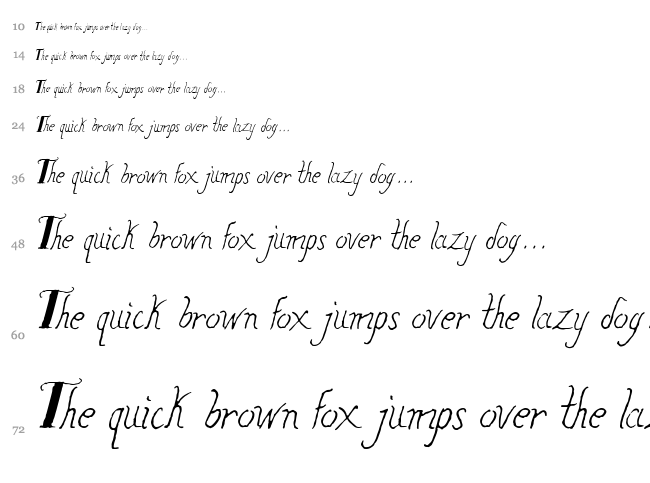 10 The quick brown fox jumps over the lazy dog...
14 The quick brown fox jumps over the lazy dog...
18 The quick brown fox jumps over the lazy dog...
24 The quick brown fox jumps over the lazy dog...
36 The quick brown fox jumps over the lazy dog...
48 The quick brown fox jumps over the lazy dog...
60 The quick brown fox jumps over the lazy dog.
72 The quick brown fox jumps over the la